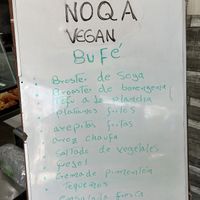 NOQA
VEGAN
BuFé
Broster de Soya
Broaster de berengena
Tofu a la plancha
platanos fritos
arepitas fritas
arroz chaufa
Saltado de vegetales
yesol
Crema de pimenton
Tequeños
Ensalada fresca